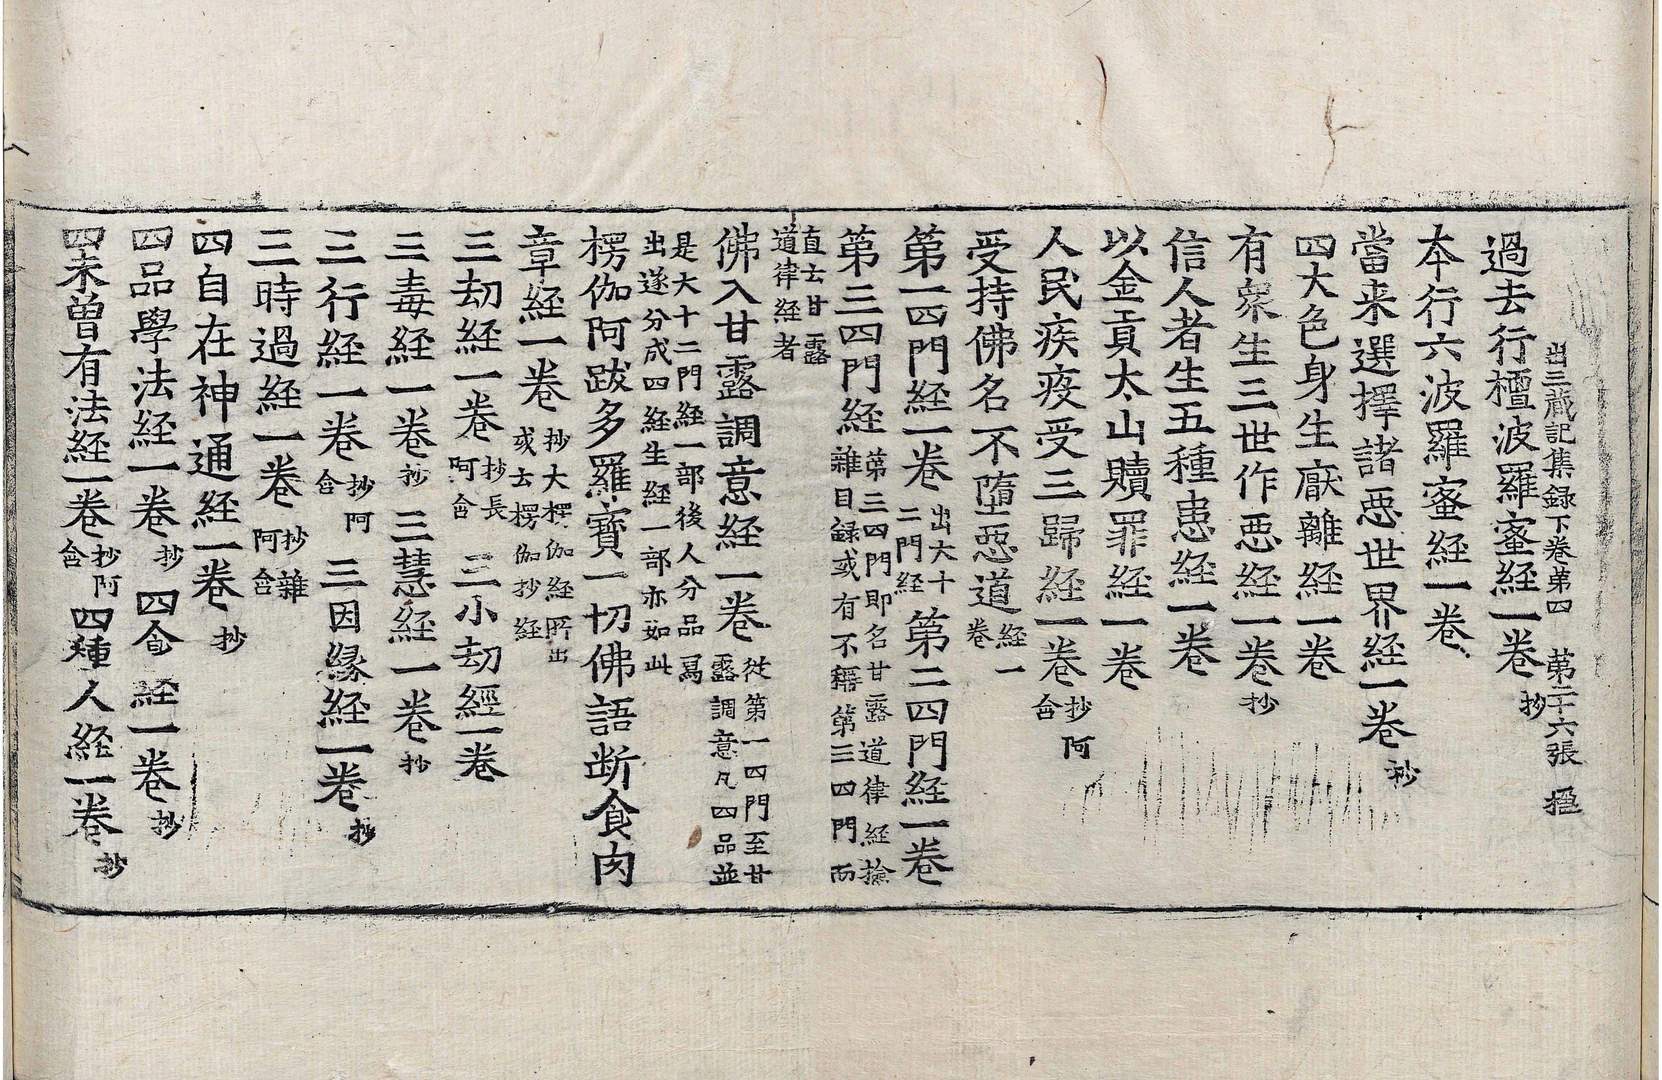 出三藏記集録下卷第四　第二十六張　𢮦
過去行檀波羅蜜経一卷抄
本行六波羅蜜経一卷
當来選擇諸惡世界経一卷抄
四大色身生厭離経一卷
有衆生三世作惡経一卷抄
信人者生五種患経一卷
以金貢太山贖罪経一卷
人民疾疫受三歸経一卷抄阿含
受持佛名不墮惡道経一卷
第一四門経一卷出大十二門経　第二四門経一卷
第三四門経第三四門即名甘露道律経撿雜目録或有不稱第三四門而
直云甘露道律経者
佛入甘露調意経一卷從第一四門至甘露調意凡四品並
是大十二門経一部後人分品寫出遂分成四経生経一部亦如此
楞伽阿跋多羅寶一切佛語断食肉
章経一卷抄大楞伽経所出或云楞伽抄経
三劫経一卷抄長阿含　三小劫經一卷
三毒経一卷抄　三慧経一卷抄
三行経一卷抄阿含　三因縁経一卷抄
三時過経一卷抄雜阿含
四自在神通経一卷抄
四品學法経一卷抄　四食経一卷抄
四未曽有法経一卷抄阿含　四種人経一卷抄